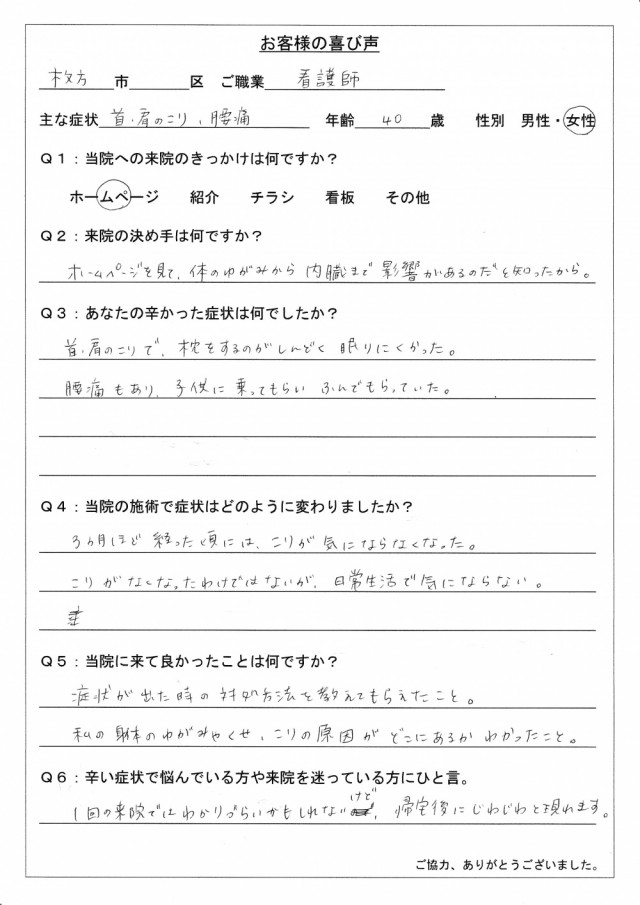 お客様の喜び声
枚方 市 区 ご職業 看護師
主な症状 首・肩のこり、腰痛 年齢 40 歳 性別 男性・女性
Q1：当院への来院のきっかけは何ですか？
ホームページ 紹介 チラシ 看板 その他
Q2：来院の決め手は何ですか？
ホームページを見て、体のゆがみから内臓まで影響があるのだと知ったから。
Q3：あなたの辛かった症状は何でしたか？
首・肩のこりで、枕をするのがしんどく眠りにくかった。
腰痛もあり、子供に乗ってもらいふんでもらっていた。
Q4：当院の施術で症状はどのように変わりましたか？
3ヵ月ほど経った頃には、こりが気にならなくなった。
こりがなくなったわけではないが、日常生活で気にならない。
Q5：当院に来て良かったことは何ですか？
症状が出た時の対処方法を教えてもらえたこと。
私の身体のゆがみやくせ、こりの原因がどこにあるかわかったこと。
Q6：辛い症状で悩んでいる方や来院を迷っている方にひと言。
1回の来院ではわかりづらいかもしれないけど、帰宅後にじわじわと現れます。
ご協力、ありがとうございました。